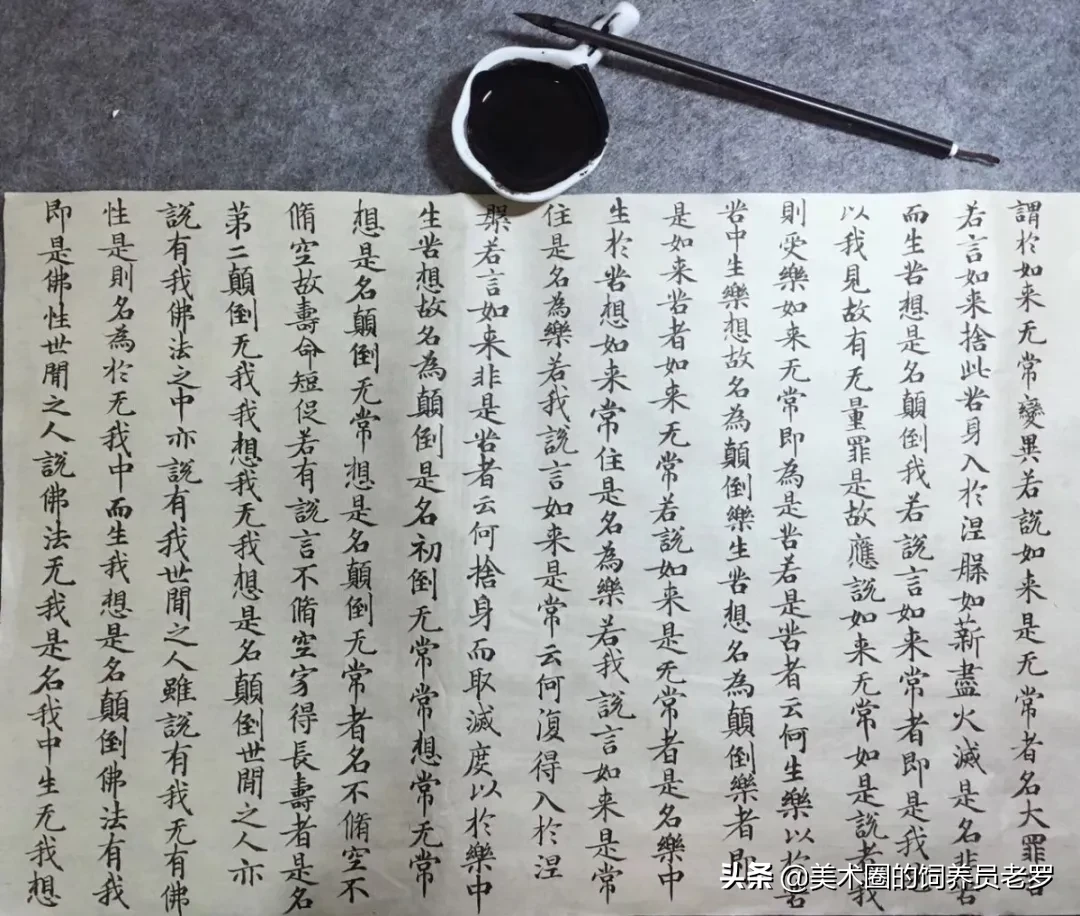 謂於如来无常變異若說如来是无常者名大罪苦
若言如来捨此苦身入於涅槃如薪盡火滅是名非苦
而生苦想是名顛倒我若說言如来常者即是我見
以我見故有无量罪是故應說如来无常如是說者我
則受樂如来无常即為是苦若是苦者云何生樂以於苦
苦中生樂想故名為顛倒樂生苦想名為顛倒樂者即
是如来苦者如来无常若說如来是无常者是名樂中
生於苦想如来常住是名為樂若我說言如来是常
住是名為樂若我說言如来是常云何復得入於涅
槃若言如来非是苦者云何捨身而取滅度以於樂中
生苦想故名為顛倒是名初倒无常常想常无常
想是名顛倒无常想是名顛倒无常者名不脩空不
脩空故壽命短促若有說言不脩空穷得長壽者是名
第二顛倒无我我想我无我想是名顛倒世間之人亦
說有我佛法之中亦說有我世間之人雖說有我无有佛
性是則名為於无我中而生我想是名顛倒佛法有我
即是佛性世間之人說佛法无我是名我中生无我想
头条 @美术圈的饲养员老罗